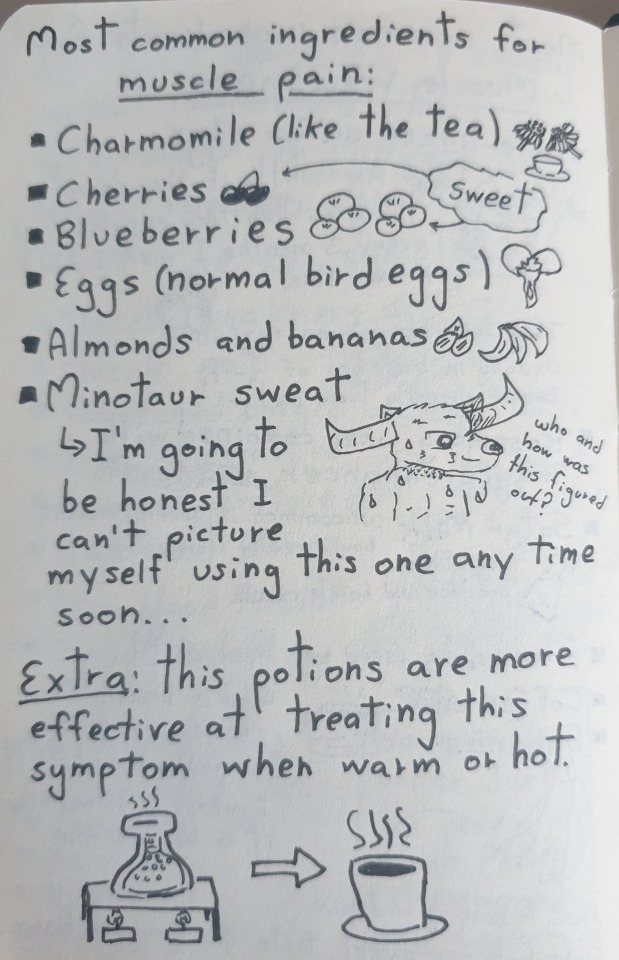 Most common ingredients for
muscle pain:
▪ Charmomile (like the tea)
▪ Cherries
sweet
▪ Blueberries
▪ Eggs (normal bird eggs)
▪ Almonds and bananas
▪ Minotaur sweat
↳ I'm going to
be honest I
can't picture
myself using this one any time
soon...
who and
how was
this figured
out?
Extra: this potions are more
effective at treating this
symptom when warm or hot.